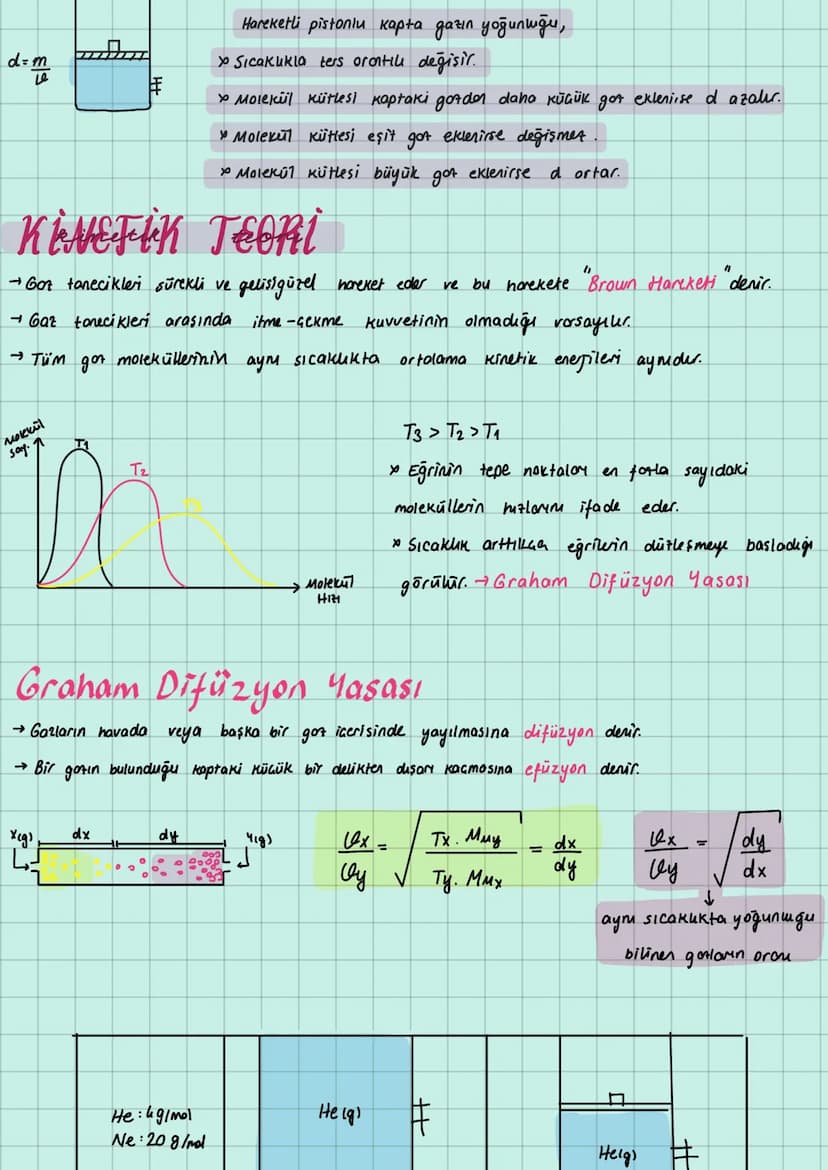 Hareketli pistonlu kapta gazın yoğunluğu,
d = m/v
* Sıcaklıkla ters orantılı değişir.
* Molekül kütlesi kaptaki gazdan daha küçük gaz eklenirse d azalır.
* Molekül kütlesi eşit gaz eklenirse değişmez.
* Molekül kütlesi büyük gaz eklenirse d artar.
KİNETİK TEORİ
→ Gaz tanecikleri sürekli ve gelişigüzel hareket eder ve bu harekete "Brown Hareketi" denir.
→ Gaz tanecikleri arasında itme-çekme kuvvetinin olmadığı varsayılır.
→ Tüm gaz moleküllerinin aynı sıcaklıkta ortalama kinetik enerjileri aynıdır.
Molekül
say.
T1
T2
T3
Molekül
Hızı
T3 > T2 > T1
* Eğrinin tepe noktaları en fazla sayıdaki
moleküllerin hızlarını ifade eder.
* Sıcaklık arttıkça eğrilerin düzleşmeye başladığı
görülür. → Graham Difüzyon Yasası
Graham Difüzyon Yasası
→ Gazların havada veya başka bir gaz içerisinde yayılmasına difüzyon denir.
→ Bir gazın bulunduğu kaptaki küçük bir delikten dışarı kaçmasına efüzyon denir.
X(g) dx dy Y(g)
vx/vy = √(Tx . MAy / Ty . MAx) = dx/dy
vx/vy = √(dy/dx)
aynı sıcaklıkta yoğunluğu
bilinen gazların oranı
He : 4g/mol
Ne : 20 g/mol
He(g)
He(g)